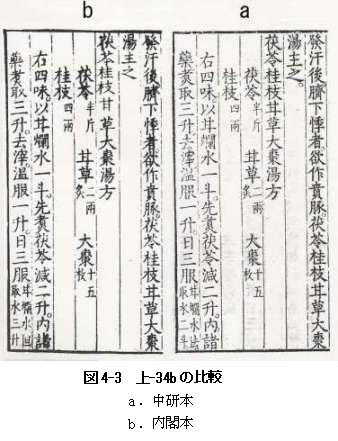 b a
發汗後臍下悸者。欲作賁豚。茯苓桂枝甘草大棗
湯主之。
茯苓桂枝甘草大棗湯方
茯苓半斤 甘草二兩炙 大棗十五枚
桂枝四兩
右四味。以甘爛水一斗。先煮茯苓減二升。内諸
藥。煮取三升。去滓溫服一升。日三服。甘爛水法取水二斗
發汗後。臍下悸者。欲作賁豚。茯苓桂枝甘草大棗
湯主之
茯苓桂枝甘草大棗湯方
茯苓半斤 甘草二兩炙 大棗十五枚
桂枝四兩
右四味。以甘爛水一斗。先煮茯苓減二升。内諸
藥煮取三升去滓溫服一升。日三服甘爛水回取水三升
図4-3 上-34bの比較
a．中研本
b．内閣本